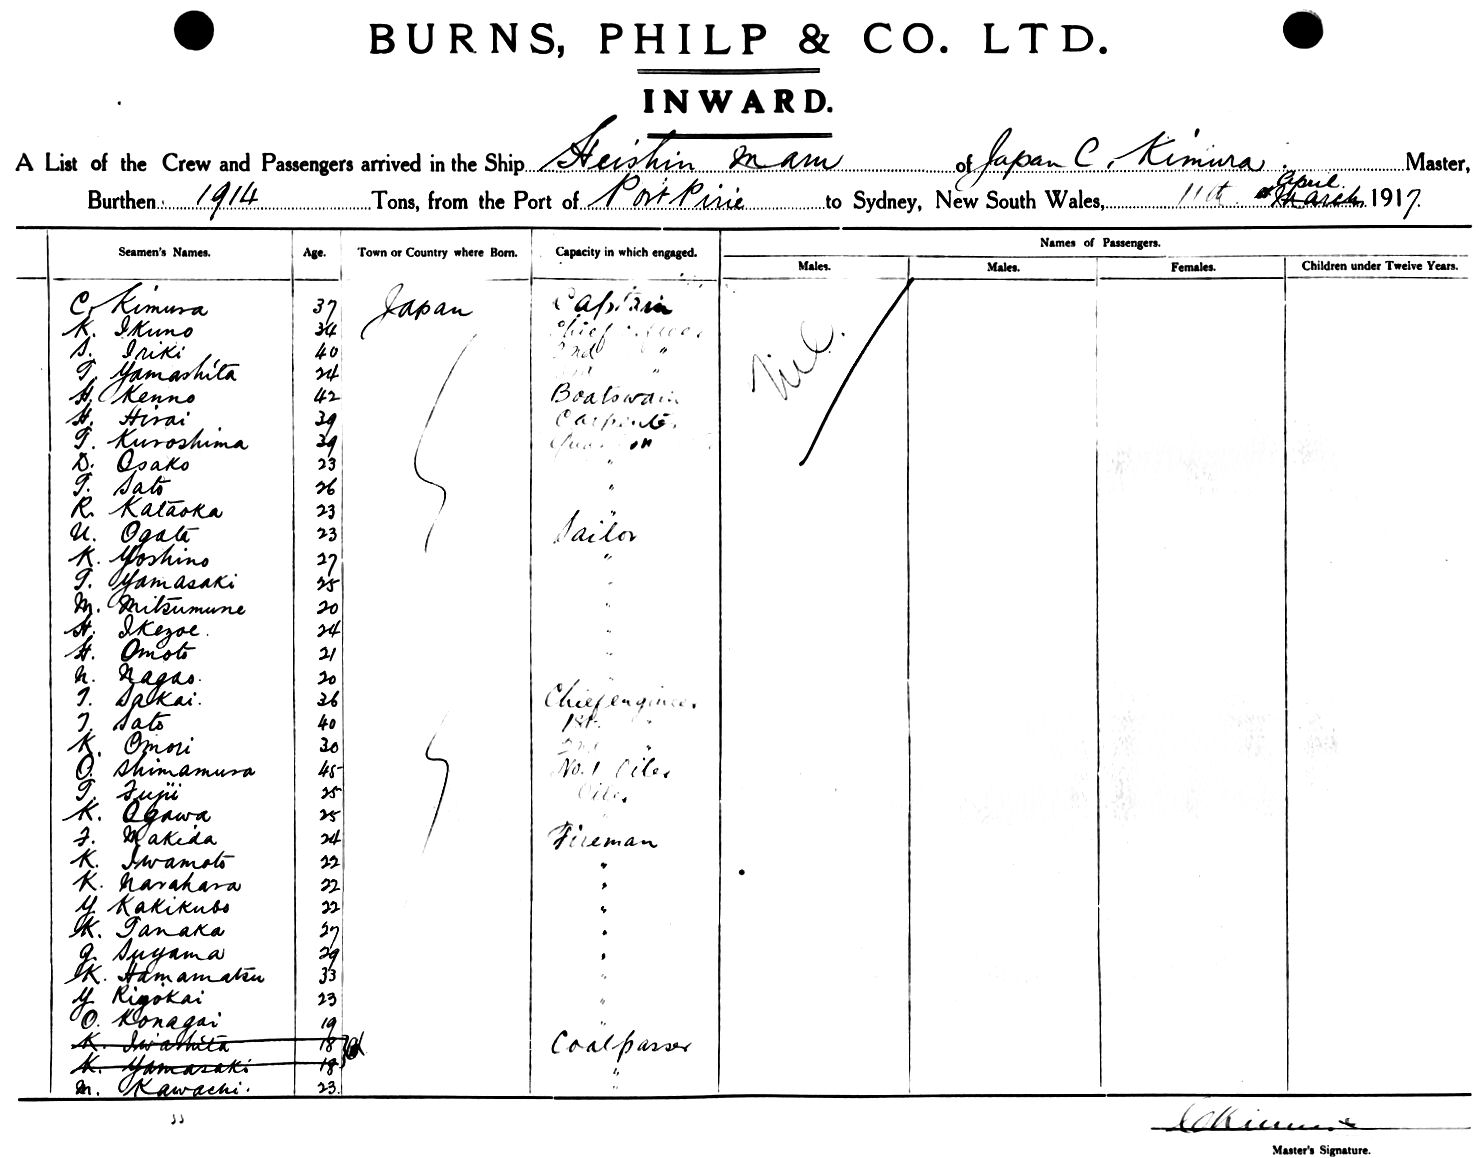 BURNS, PHILP & CO. LTD.
INWARD.
A List of the Crew and Passengers arrived in the Ship Heishin Maru of Japan C. Kimura Master,
Burthen 1914 Tons, from the Port of Port Pirie to Sydney, New South Wales, 11th March April 1917.
Names of Passengers.
Seamen's Names. Age. Town or Country where Born. Capacity in which engaged. Males. Males. Females. Children under Twelve Years.
C. Kimura 37 Japan Captain Nil.
K. Ikuno 34 Chief
S. Iriki 40 2nd "
T. Yamashita 24 "
H. Kenno 42 Boatswain
H. Hirai 39 Carpenter
T. Kuroshima 39
D. Osako 23 "
T. Sato 26 "
R. Kataoka 23 "
U. Ogata 23 Sailor
K. Yoshino 27 "
T. Yamasaki 25 "
M. Mitsumune 20 "
H. Ikezoe. 24 "
H. Omoto 21 "
N. Nagao. 20 "
T. Sakai. 36 Chief engineer
T. Sato 40 1st "
K. Omori 30 2nd "
O. Shimamura 45 No. 1 Oiler
T. Fujii 25 Oiler
K. Ogawa 25 "
F. Makida 24 Fireman
K. Iwamoto 22 "
K. Narahara 22 "
Y. Kakikubo 22 "
K. Tanaka 27 "
G. Suyama 29 "
K. Hamamatsu 33 "
Y. Rigokai 23 "
O. Konagai 19 "
K. Iwashita 18 Coalpasser
K. Yamasaki 18 "
M. Kawachi. 23. "
C Kimura
Master's Signature.